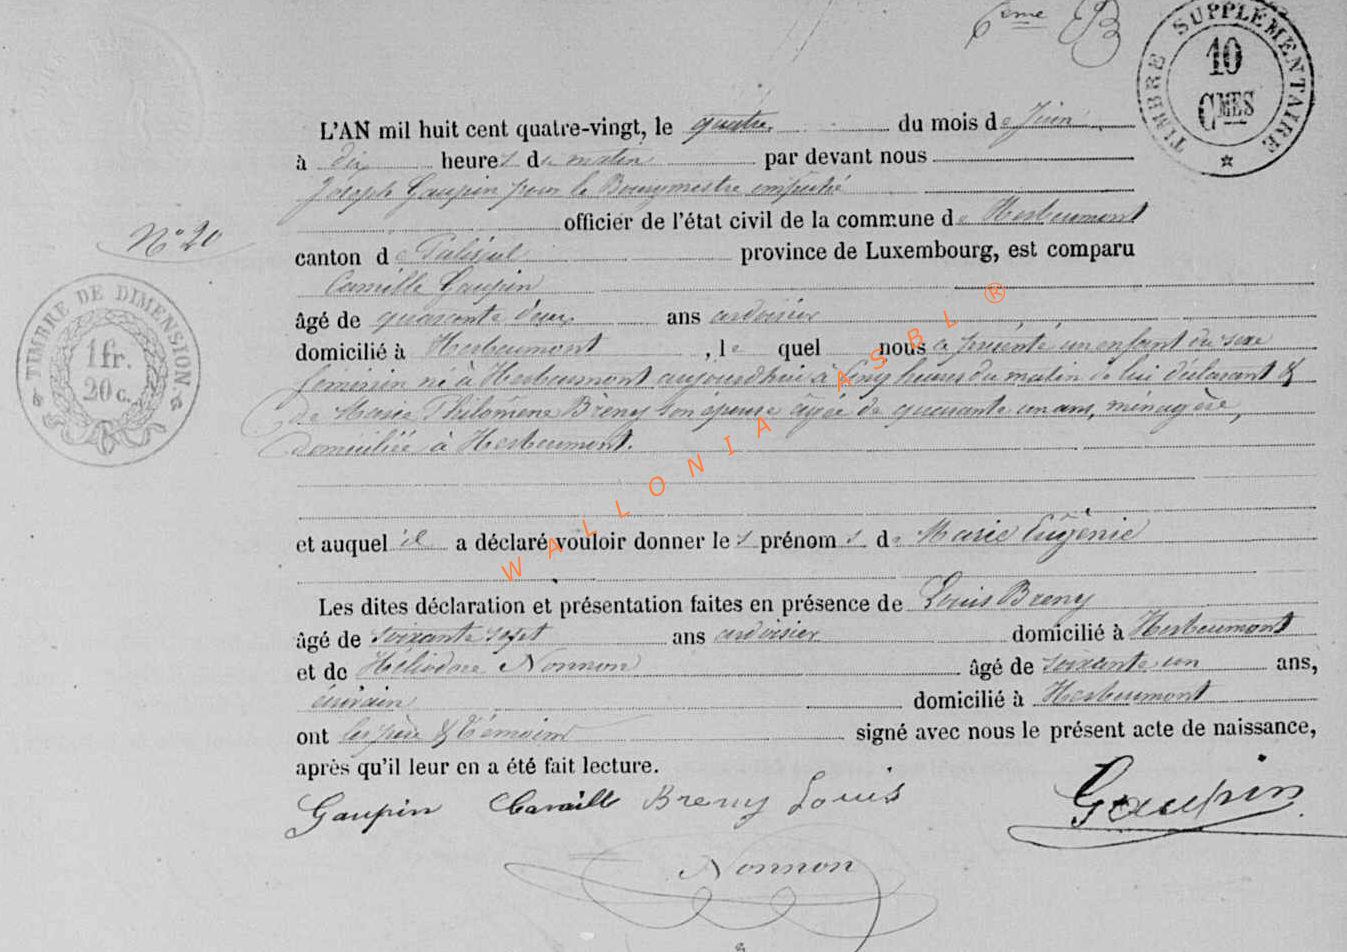 6ème B
TIMBRE SUPPLÉMENTAIRE
10
CMES
L'AN mil huit cent quatre-vingt, le quatre du mois de Juin
à dix heures du matin par devant nous
Joseph Gaupin pour le Bourgmestre empêché
officier de l'état civil de la commune de Herbeumont
N° 20
canton de Paliseul province de Luxembourg, est comparu
Camille Gaupin
TIMBRE DE DIMENSION
1 fr.
20 c.
âgé de quarante deux ans ardoisier
domicilié à Herbeumont, le quel nous a présenté un enfant du sexe
feminin né à Herbeumont aujourd'hui à cinq heures du matin de lui déclarant &
de Marie Philomène Brèny son épouse âgée de quarante un ans, ménagère,
domiciliée à Herbeumont.
et auquel il a déclaré vouloir donner les prénoms de Marie Eugénie
Les dites déclaration et présentation faites en présence de Louis Breny
âgé de soixante sept ans ardoisier domicilié à Herbeumont
et de Héliodore Nonnon âgé de soixante un ans,
domicilié à Herbeumont
ont les père & témoins signé avec nous le présent acte de naissance,
après qu'il leur en a été fait lecture.
Gaupin Camille Breny Louis Gaupin
Nonnon
WALLONIA ASBL ®